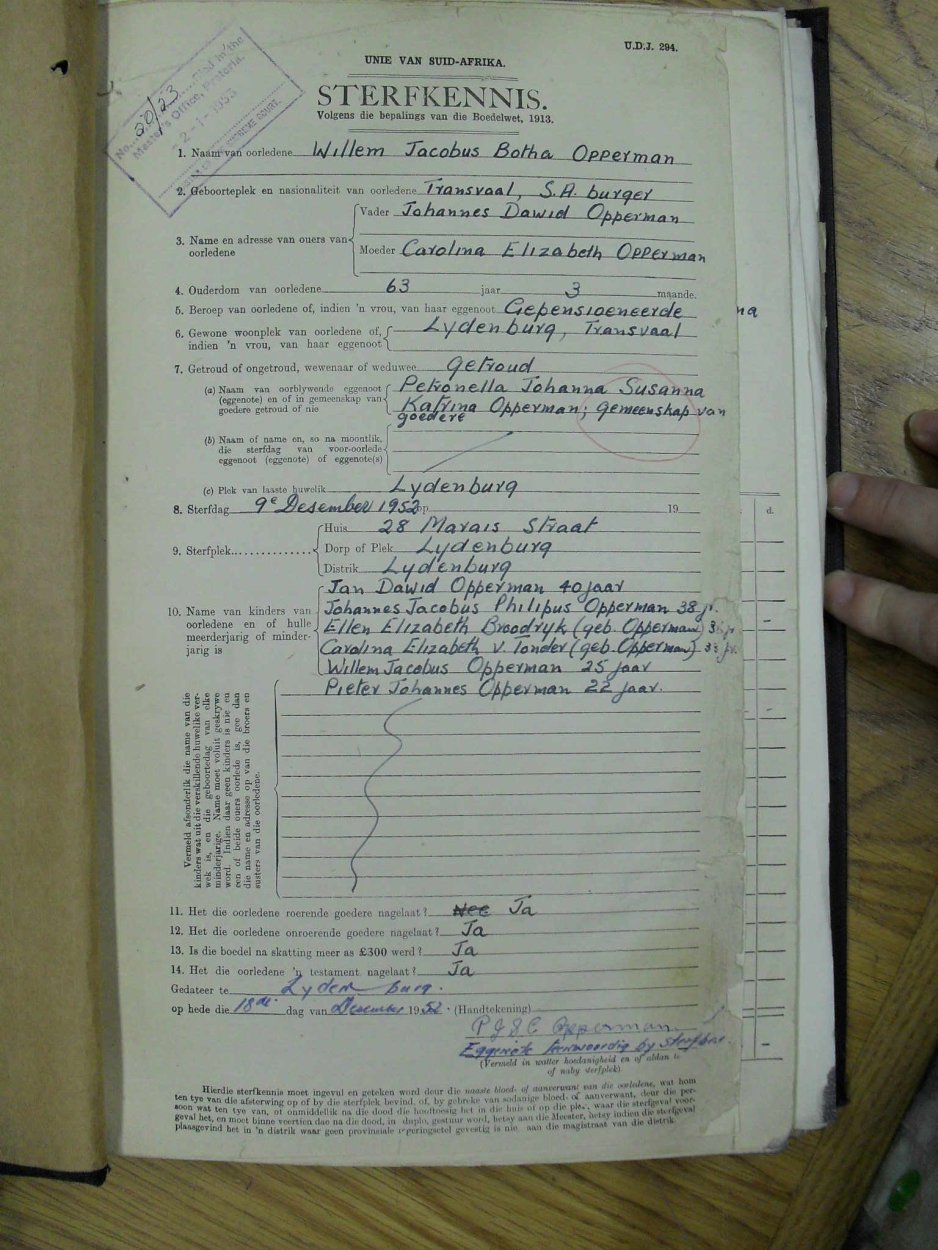 U.D.J. 294.
UNIE VAN SUID-AFRIKA.
STERFKENNIS.
Volgens die bepalings van die Boedelwet, 1913.
No. 20/23 Filed in the
Master's Office, Pretoria.
2-1-1953
SUPREME COURT.
1. Naam van oorledene Willem Jacobus Botha Opperman
2. Geboorteplek en nasionaliteit van oorledene Transvaal, S.A. burger
3. Name en adresse van ouers van oorledene
Vader Johannes Dawid Opperman
Moeder Carolina Elizabeth Opperman
4. Ouderdom van oorledene 63 jaar 3 maande.
5. Beroep van oorledene of, indien 'n vrou, van haar eggenoot Gepensioeneerde
6. Gewone woonplek van oorledene of, indien 'n vrou, van haar eggenoot Lydenburg, Transvaal
7. Getroud of ongetroud, wewenaar of weduwee getroud
(a) Naam van oorblywende eggenoot (eggenote) en of in gemeenskap van goedere getroud of nie
Petronella Johanna Susanna
Katrina Opperman; gemeenskap van
goedere
(b) Naam of name en, so na moontlik, die sterfdag van voor-oorlede eggenoot (eggenote) of eggenote(s)
(c) Plek van laaste huwelik Lydenburg
8. Sterfdag 9e Desember 1952 op 19
9. Sterfplek
Huis 28 Marais Straat
Dorp of Plek Lydenburg
Distrik Lydenburg
10. Name van kinders van oorledene en of hulle meerderjarig of minderjarig is
Jan Dawid Opperman 40 jaar
Johannes Jacobus Philipus Opperman 38 jr.
Ellen Elizabeth Broodryk (geb. Opperman)
Carolina Elizabeth v. Tonder (geb. Opperman)
Willem Jacobus Opperman 25 jaar
Pieter Johannes Opperman 22 jaar.
Vermeld afsonderlik die name van die
kinders wat uit die verskillende huwelike verwek is, en die geboortedag van elke
minderjarige. Name moet voluit geskrywe
word. Indien daar geen kinders is nie en
een of beide ouers oorlede is, gee dan
die name en adresse op van die broers en
susters van die oorledene.
11. Het die oorledene roerende goedere nagelaat? Nee Ja
12. Het die oorledene onroerende goedere nagelaat? Ja
13. Is die boedel na skatting meer as £300 werd? Ja
14. Het die oorledene 'n testament nagelaat? Ja
Gedateer te Lydenburg.
op hede die 18de dag van Desember 1952. (Handtekening)
P J S C Opperman
Eggenote teenwoordig by sterfbed.
(Vermeld in watter hoedanigheid en of aldan te
of naby sterfplek)
Hierdie sterfkennis moet ingevul en geteken word deur die naaste bloed- of aanverwant van die oorledene, wat hom
ten tye van die afsterwing op of by die sterfplek bevind, of, by gebreke van sodanige bloed- of aanverwant, deur die persoon wat ten tye van, of onmiddellik na die dood die hooftoesig het in die huis of op die plek, waar die sterfgeval voorgeval het, en moet binne veertien dae na die dood, in duplo, gestuur word, hetsy aan die Meester, hetsy indien die sterfgeval
plaasgevind het in 'n distrik waar geen provinsiale regeringsetel gevestig is nie aan die magistraat van die distrik.
na
d.